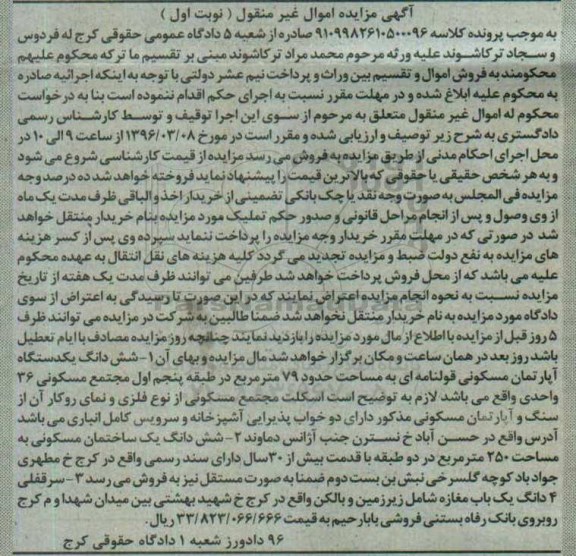 آگهی مزایده اموال غیر منقول ( نوبت اول )
به موجب پرونده کلاسه ۹۱۰۹۹۸۲۶۱۰۵۰۰۰۹۶ صادره از شعبه ۵ دادگاه عمومی حقوقی کرج له فردوس
و سجاد ترکاشوند علیه ورثه مرحوم محمد مراد ترکاشوند مبنی بر تقسیم ما ترکه محکوم علیهم
محکومند به فروش اموال و تقسیم بین وراث و پرداخت نیم عشر دولتی با توجه به اینکه اجرائیه صادره
به محکوم علیه ابلاغ شده و در مهلت مقرر نسبت به اجرای حکم اقدام ننموده است بنا به درخواست
محکوم له اموال غیر منقول متعلق به مرحوم از سوی این اجرا توقیف و توسط کارشناس رسمی
دادگستری به شرح زیر توصیف و ارزیابی شده و مقرر است در مورخ ۱۳۹۶/۰۳/۰۸ از ساعت ۹ الی ۱۰ در
محل اجرای احکام مدنی از طریق مزایده به فروش می رسد مزایده از قیمت کارشناسی شروع می شود
و به هر شخص حقیقی یا حقوقی که بالاترین قیمت را پیشنهاد نماید فروخته خواهد شد ده درصد وجه
مزایده فی المجلس به صورت وجه نقد یا چک بانکی تضمینی از خریدار اخذ و الباقی ظرف مدت یک ماه
از وی وصول و پس از انجام مراحل قانونی و صدور حکم تملیک مورد مزایده بنام خریدار منتقل خواهد
شد در صورتی که در مهلت مقرر خریدار وجه مزایده را پرداخت ننماید سپرده وی پس از کسر هزینه
های مزایده به نفع دولت ضبط و مزایده تجدید می گردد کلیه هزینه های نقل انتقال به عهده محکوم
علیه می باشد که از محل فروش پرداخت خواهد شد طرفین می توانند ظرف مدت یک هفته از تاریخ
مزایده نسبت به نحوه انجام مزایده اعتراض نمایند که در این صورت تا رسیدگی به اعتراض از سوی
دادگاه مورد مزایده به نام خریدار منتقل نخواهد شد ضمنا طالبین به شرکت در مزایده می توانند ظرف
۵ روز قبل از مزایده با اطلاع از مال مورد مزایده را بازدید نمایند چنانچه روز مزایده مصادف با ایام تعطیل
باشد روز بعد در همان ساعت و مکان برگزار خواهد شد مال مزایده و بهای آن ۱- شش دانگ یکدستگاه
آپارتمان مسکونی قولنامه ای به مساحت حدود ۷۹ متر مربع در طبقه پنجم اول مجتمع مسکونی ۳۶
واحدی واقع می باشد لازم به توضیح است اسکلت مجتمع مسکونی از نوع فلزی و نمای روکار آن از
سنگ و آپارتمان مسکونی مذکور دارای دو خواب پذیرایی آشپزخانه و سرویس کامل انباری می باشد
آدرس واقع در حسن آباد خ نسترن جنب آژانس دماوند ۲- شش دانگ یک ساختمان مسکونی به
مساحت ۲۵۰ متر مربع در دو طبقه با قدمت بیش از ۳۰ سال دارای سند رسمی واقع در کرج خ مطهری
جواد باد کوچه گلسرخی نبش بن بست دوم ضمنا به صورت مستقل نیز به فروش می رسد ۳- سرقفلی
۴ دانگ یک باب مغازه شامل زیرزمین و بالکن واقع در کرج خ شهید بهشتی بین میدان شهدا و م کرج
روبروی بانک رفاه بستنی فروشی بابا رحیم به قیمت ۳۳/۸۲۳/۰۶۶/۶۶۶ ریال.
۹۶ دادورز شعبه ۱ دادگاه حقوقی کرج